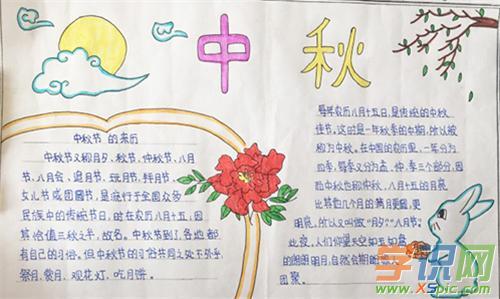 中秋
中秋节的来历
中秋节又称月夕、秋节、仲秋节、八月
节、八月会、追月节、玩月节、拜月节、
女儿节或团圆节，是流行于全国众多
民族中的传统节日，时在农历八月十五，因
其恰值三秋之半，故名。中秋节到了，各地都
有自己的习俗。但中秋节的习俗共同之处不外乎
祭月、赏月、观花灯、吃月饼。
每年农历八月十五日，是传统的中秋
佳节。这时是一年秋季的中期，所以被
称为中秋。在中国的农历里，一年分为
四季，每季又分为孟、仲、季三个部分，因
而中秋也称仲秋。八月十五的月亮
比其他几个月的满月更圆，更
明亮，所以又叫做"月夕""八月节"。
此夜，人们仰望天空如玉如盘
的朗朗明月，自然会期盼家人
团聚。
学识网
www.XSpic.com